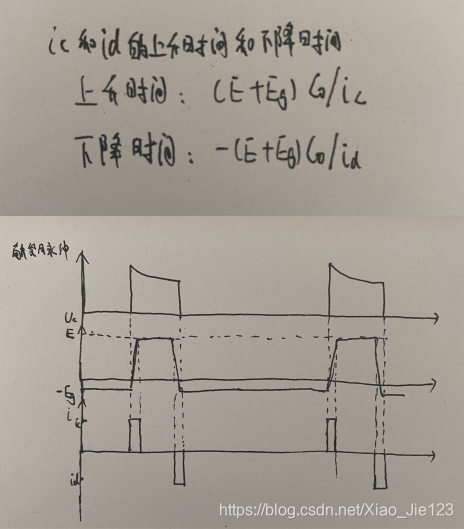 ic和id的上升时间和下降时间
上升时间：(E+Eg)C0/ic
下降时间：-(E+Eg)C0/id
触发脉冲
Uc
E
-Eg
ic
id
https://blog.csdn.net/Xiao_Jie123